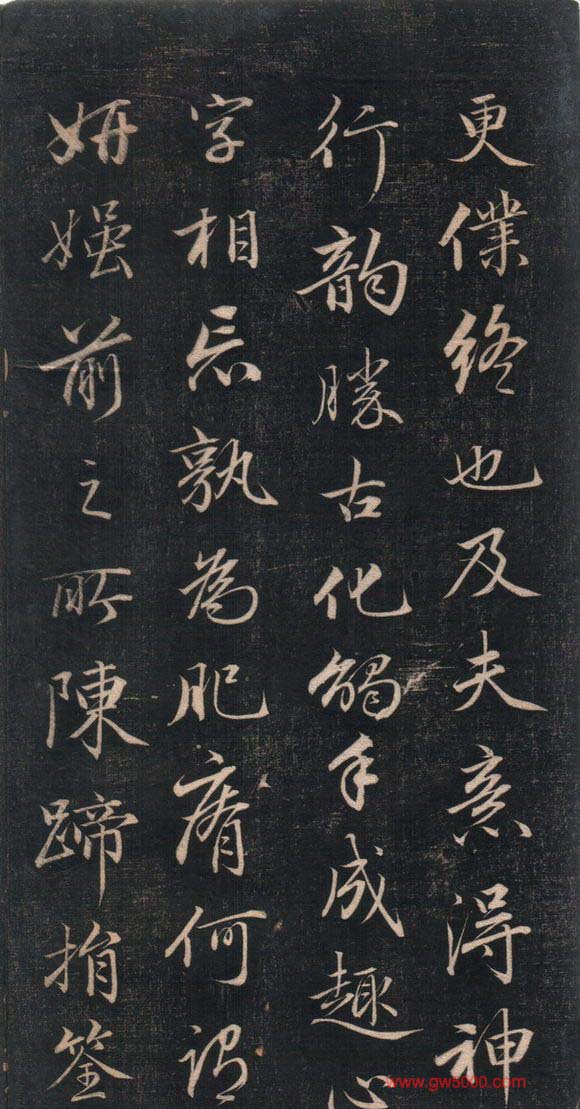 更僕終也及夫意得神
行韵勝古化觸手成趣心
字相忘孰為肥瘠何謂
妍媸前之所陳蹄捐筌
www.gw5000.com